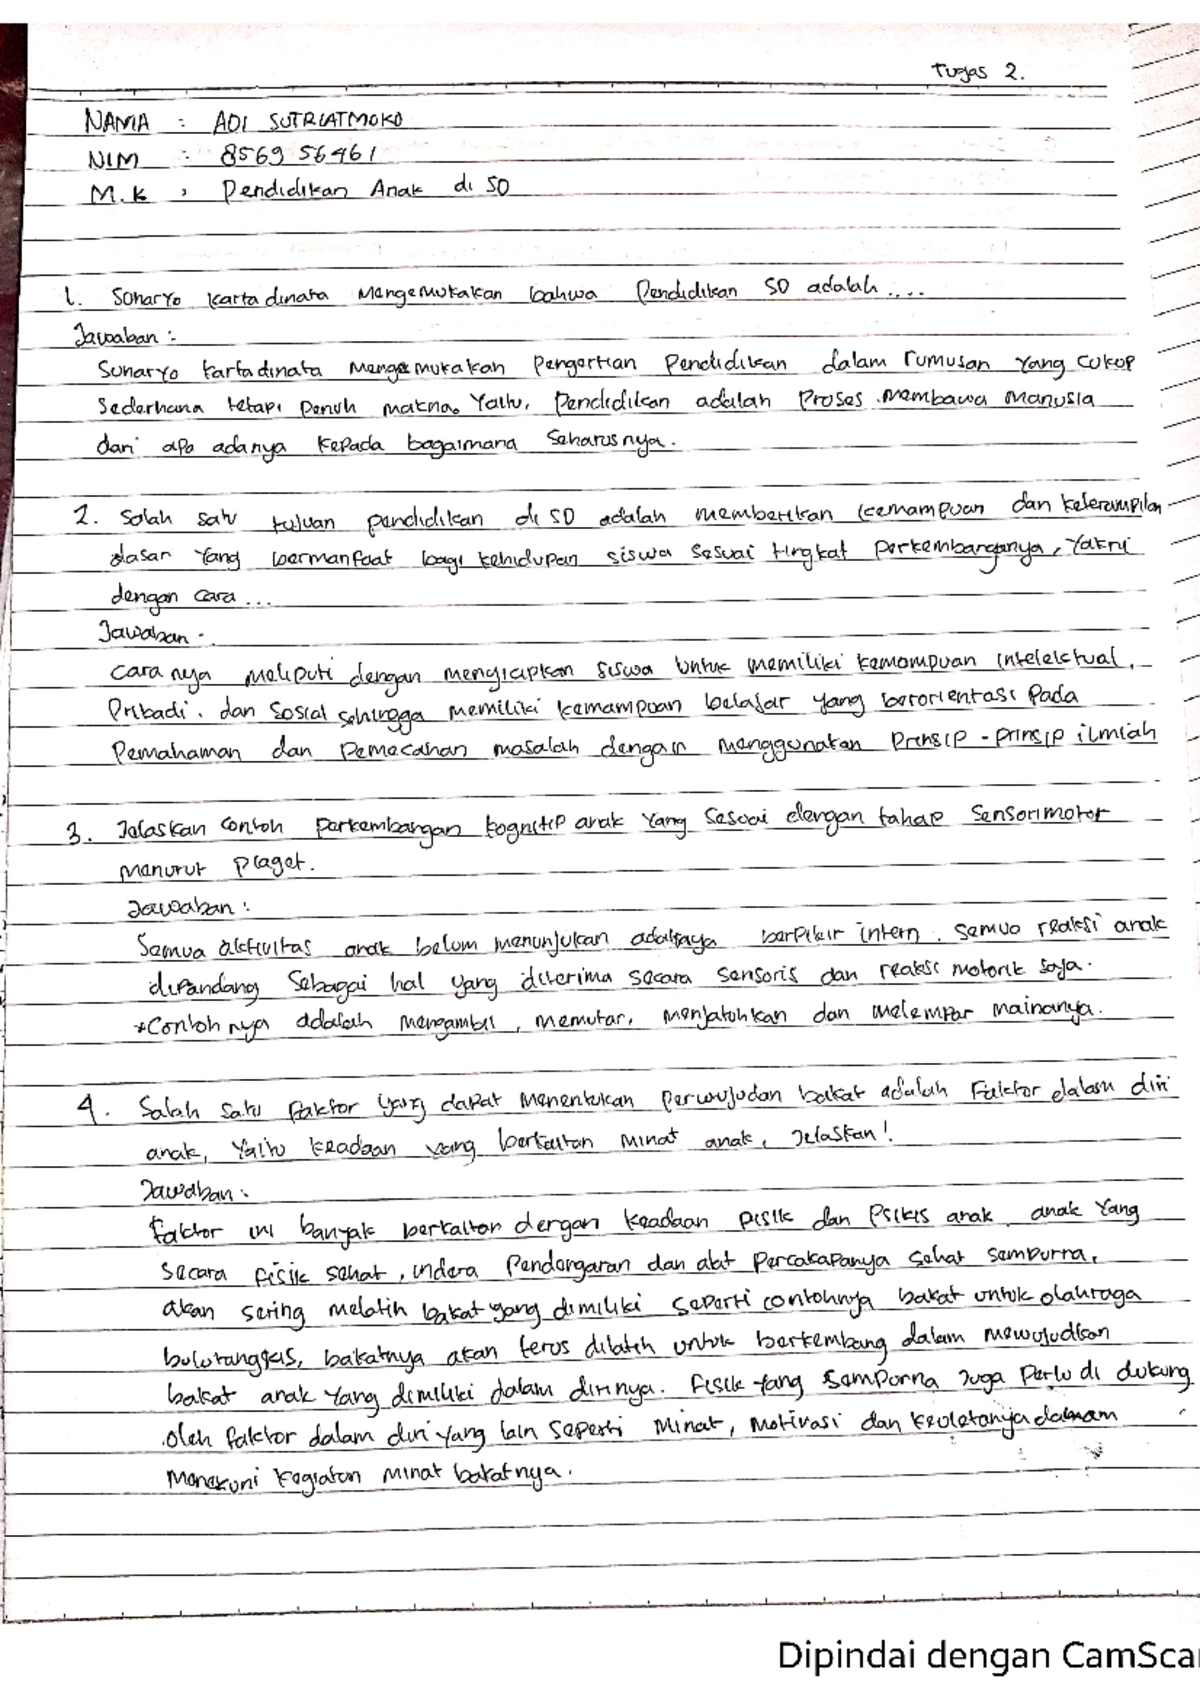 Tugas 2.
NAMA : ADI SUTRIATMOKO
NIM : 8569 56461
M.K : Pendidikan Anak di SD
1. Sunaryo kartadinata Mengemukakan bahwa Pendidikan SD adalah ....
Jawaban :
Sunaryo kartadinata Mengemukakan Pengertian Pendidikan dalam rumusan Yang cukup
Sederhana tetapi Penuh makna. Yaitu, Pendidikan adalah Proses membawa Manusia
dari apa adanya kepada bagaimana Seharusnya.
2. Salah satu tujuan pendidikan di SD adalah memberikan kemampuan dan keterampilan
dasar Yang bermanfaat bagi kehidupan siswa sesuai tingkat Perkembanganya, Yakni
dengan cara ...
Jawaban :
Cara nya meliputi dengan menyiapkan siswa Untuk memiliki kemampuan Intelektual,
Pribadi, dan Sosial sehingga memiliki kemampuan belajar yang berorientasi Pada
Pemahaman dan Pemecahan masalah dengan menggunakan Prinsip - Prinsip ilmiah
3. Jelaskan contoh perkembangan kognitip anak Yang Sesuai dengan tahap Sensorimotor
menurut Piaget.
Jawaban :
Semua aktivitas anak belum menunjukan adanya berpikir intern. Semua reaksi anak
dipandang Sebagai hal yang diterima secara sensoris dan reaksi motorik saja.
*Contoh nya adalah mengambil, memutar, menjatuhkan dan melempar mainanya.
4. Salah satu faktor yang dapat menentukan perwujudan bakat adalah Faktor dalam diri
anak, Yaitu keadaan yang berkaitan minat anak, Jelaskan!
Jawaban :
faktor ini banyak berkaitan dengan keadaan pisik dan Psikis anak. anak Yang
secara fisik sehat, indera Pendengaran dan alat Percakapanya sehat sempurna,
akan sering melatih bakat yang dimiliki seperti contohnya bakat untuk olahraga
bulutangkis, bakatnya akan terus dilatih untuk berkembang dalam mewujudkan
bakat anak Yang dimiliki dalam dirinya. Fisik Yang Sempurna Juga Perlu di dukung
oleh faktor dalam diri yang lain seperti Minat, Motivasi dan keuletanya dalam
Menekuni kegiatan minat bakatnya.
Dipindai dengan CamScan